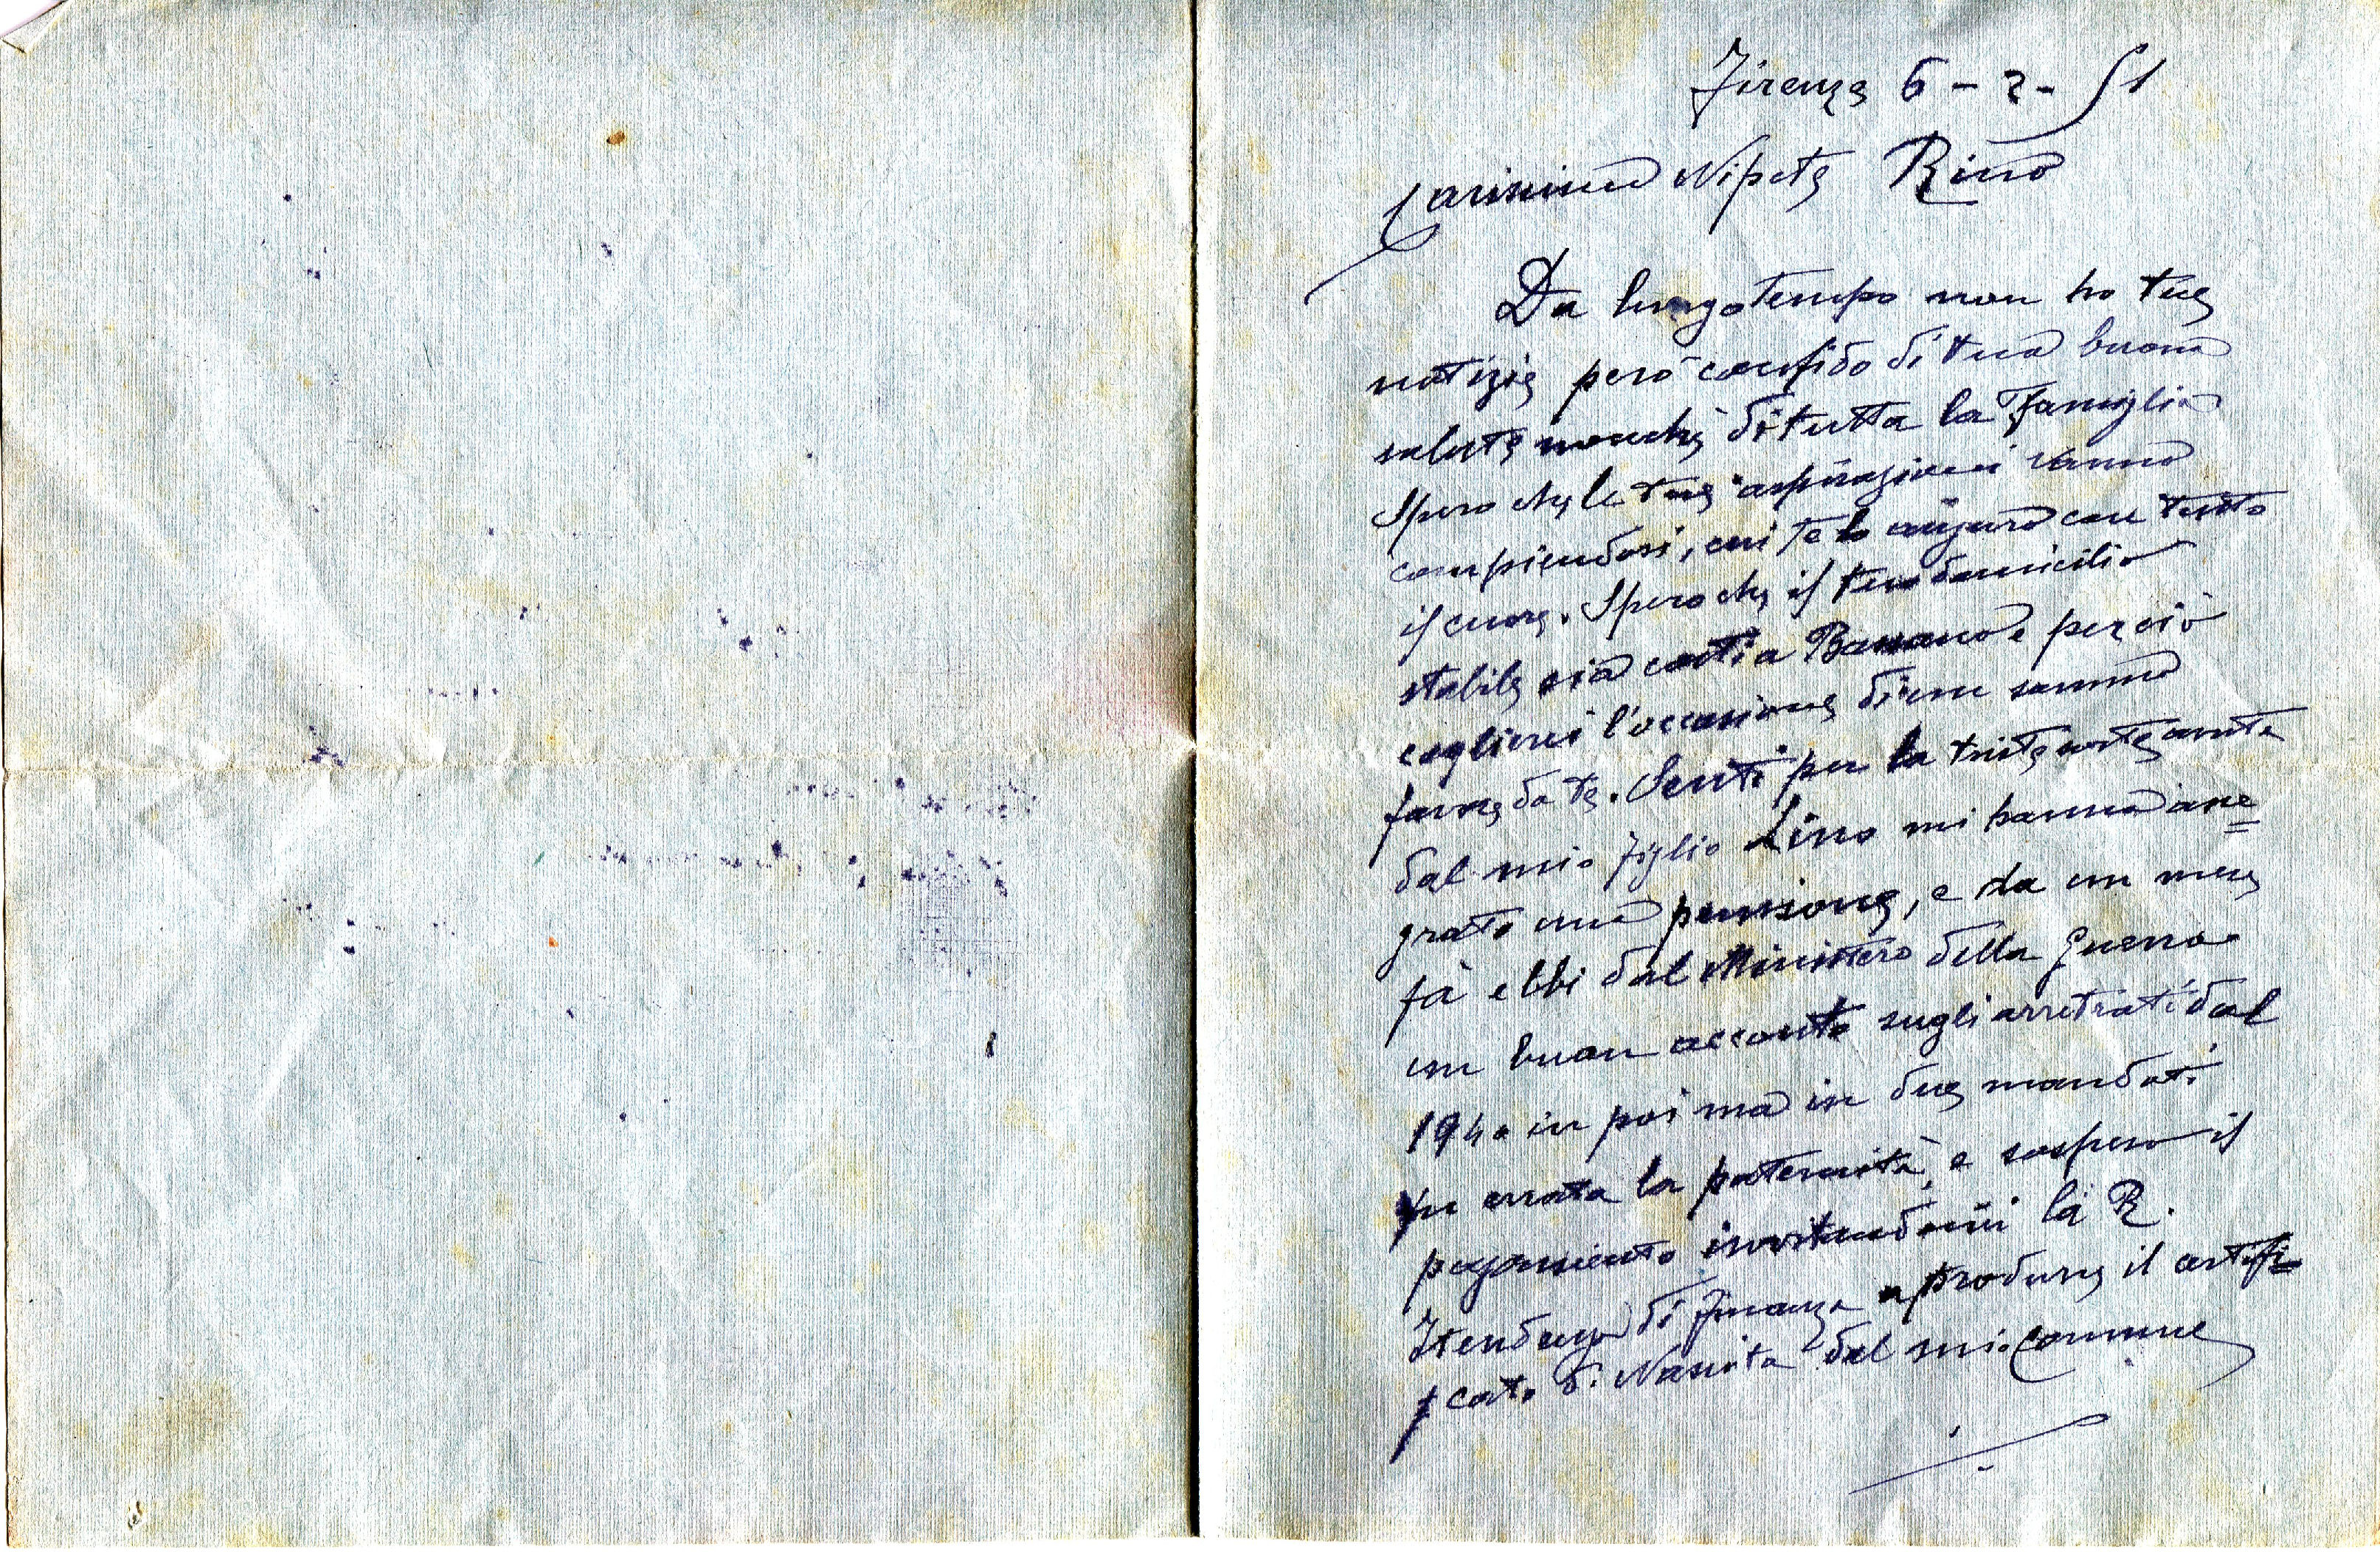 Firenze 6 - 2 - 51
Carissimo Nipote Rino
Da lungo tempo non ho tue
notizie però confido di tua buona
salute nonché di tutta la Famiglia
Spero che le tue aspirazioni vanno
compiendosi, cui te lo auguro con tutto
il cuore. Spero che il tuo domicilio
stabile sia costì a e perciò
coglierei l'occasione di un sommo
favore da te. Senti per la triste sorte avuta
dal mio figlio Lino mi hanno asse=
grato una pensione, e da un mese
fà ebbi dal Ministero della Guerra
un buon acconto sugli arretrati dal
1940 in poi ma in due mandati
fu errata la paternità, e sospeso il
pagamento invitandomi la R.
Itendenza di finanza a produrre il certifi-
cato di Nascita dal mio Comune